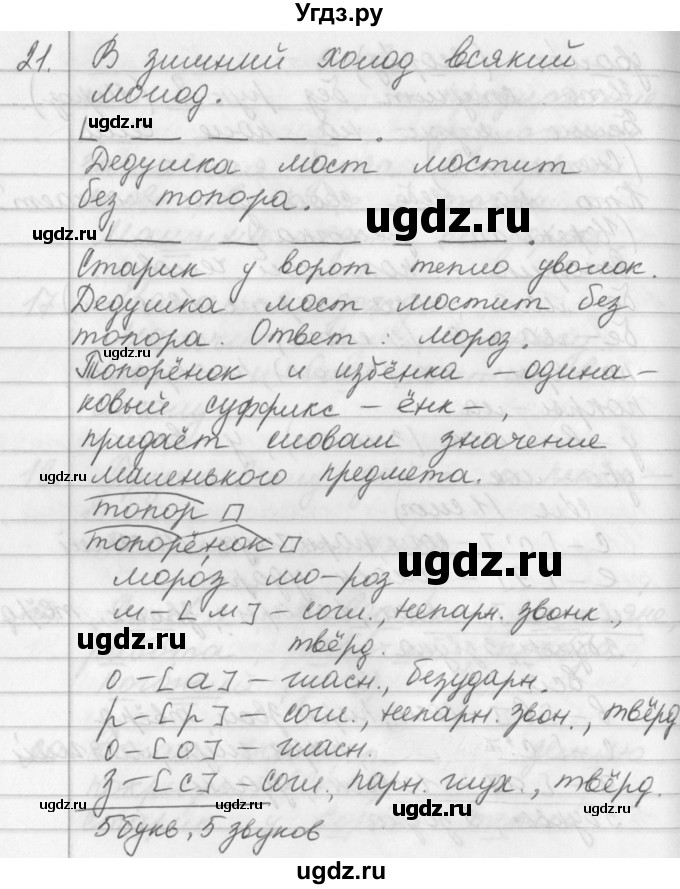 Угдз.ру
21. В зимний холод всякий
молод.
ugdz.ru
Дедушка мост мостит
без топора.
ugdz.ru
ugdz.ru
Старик у ворот тепло уволок.
Дедушка мост мостит без
топора. Ответ: мороз.
ugdz.ru
Топорёнок и избёнка – одина-
ковый суффикс – ёнк –,
придаёт словам значение
маленького предмета.
ugdz.ru
топор
топорёнок
ugdz.ru
моро́з мо-роз
м – [м] – согл., непарн. звонк.,
твёрд.
ugdz.ru
о – [а] – гласн., безударн.
р – [р] – согл., непарн. звон., твёрд
о – [о] – гласн.
з – [с] – согл, парн. глух., твёрд.
ugdz.ru
ugdz.ru
5 букв, 5 звуков
ugdz.ru